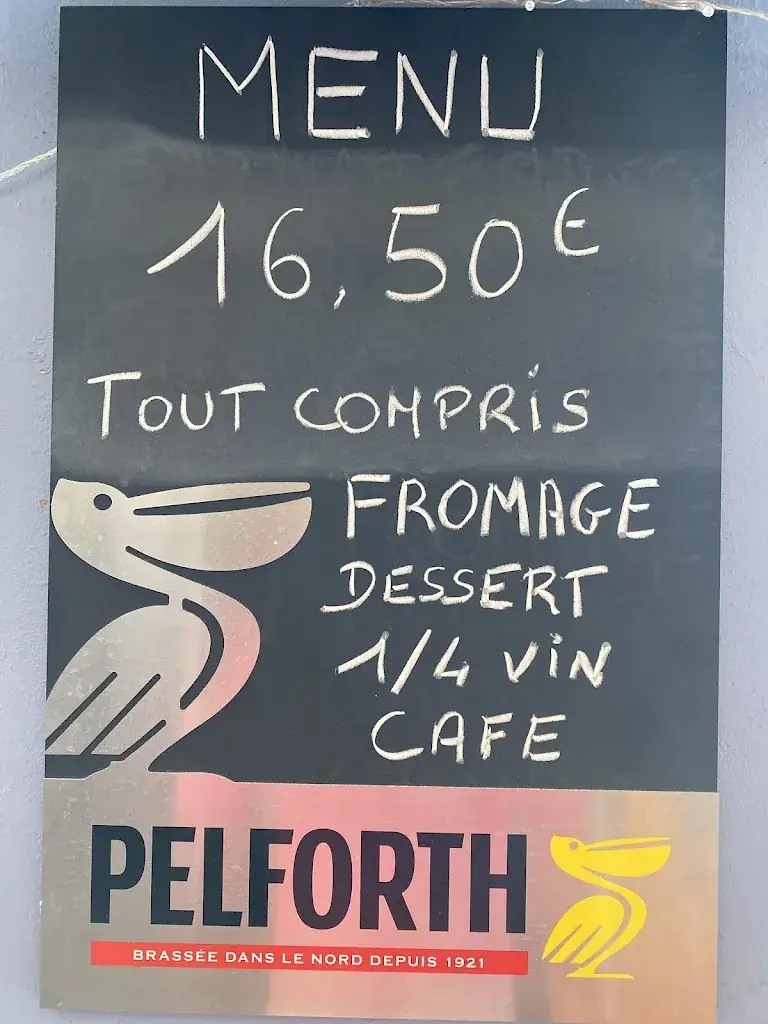 MENU
16,50€
TOUT COMPRIS
FROMAGE
DESSERT
1/4 VIN
CAFE
PELFORTH
BRASSÉE DANS LE NORD DEPUIS 1921